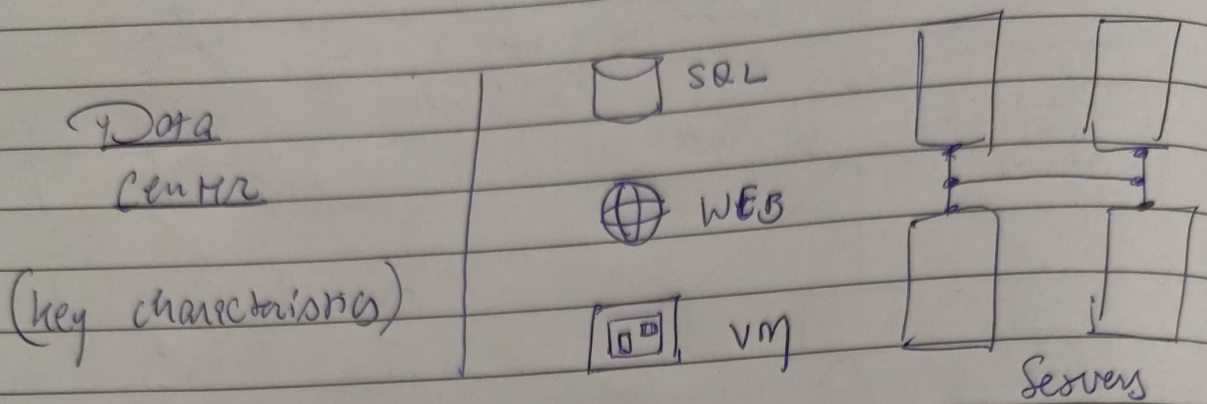 Data
Center
(key charecteristics)
SQL
WEB
VM
Servers